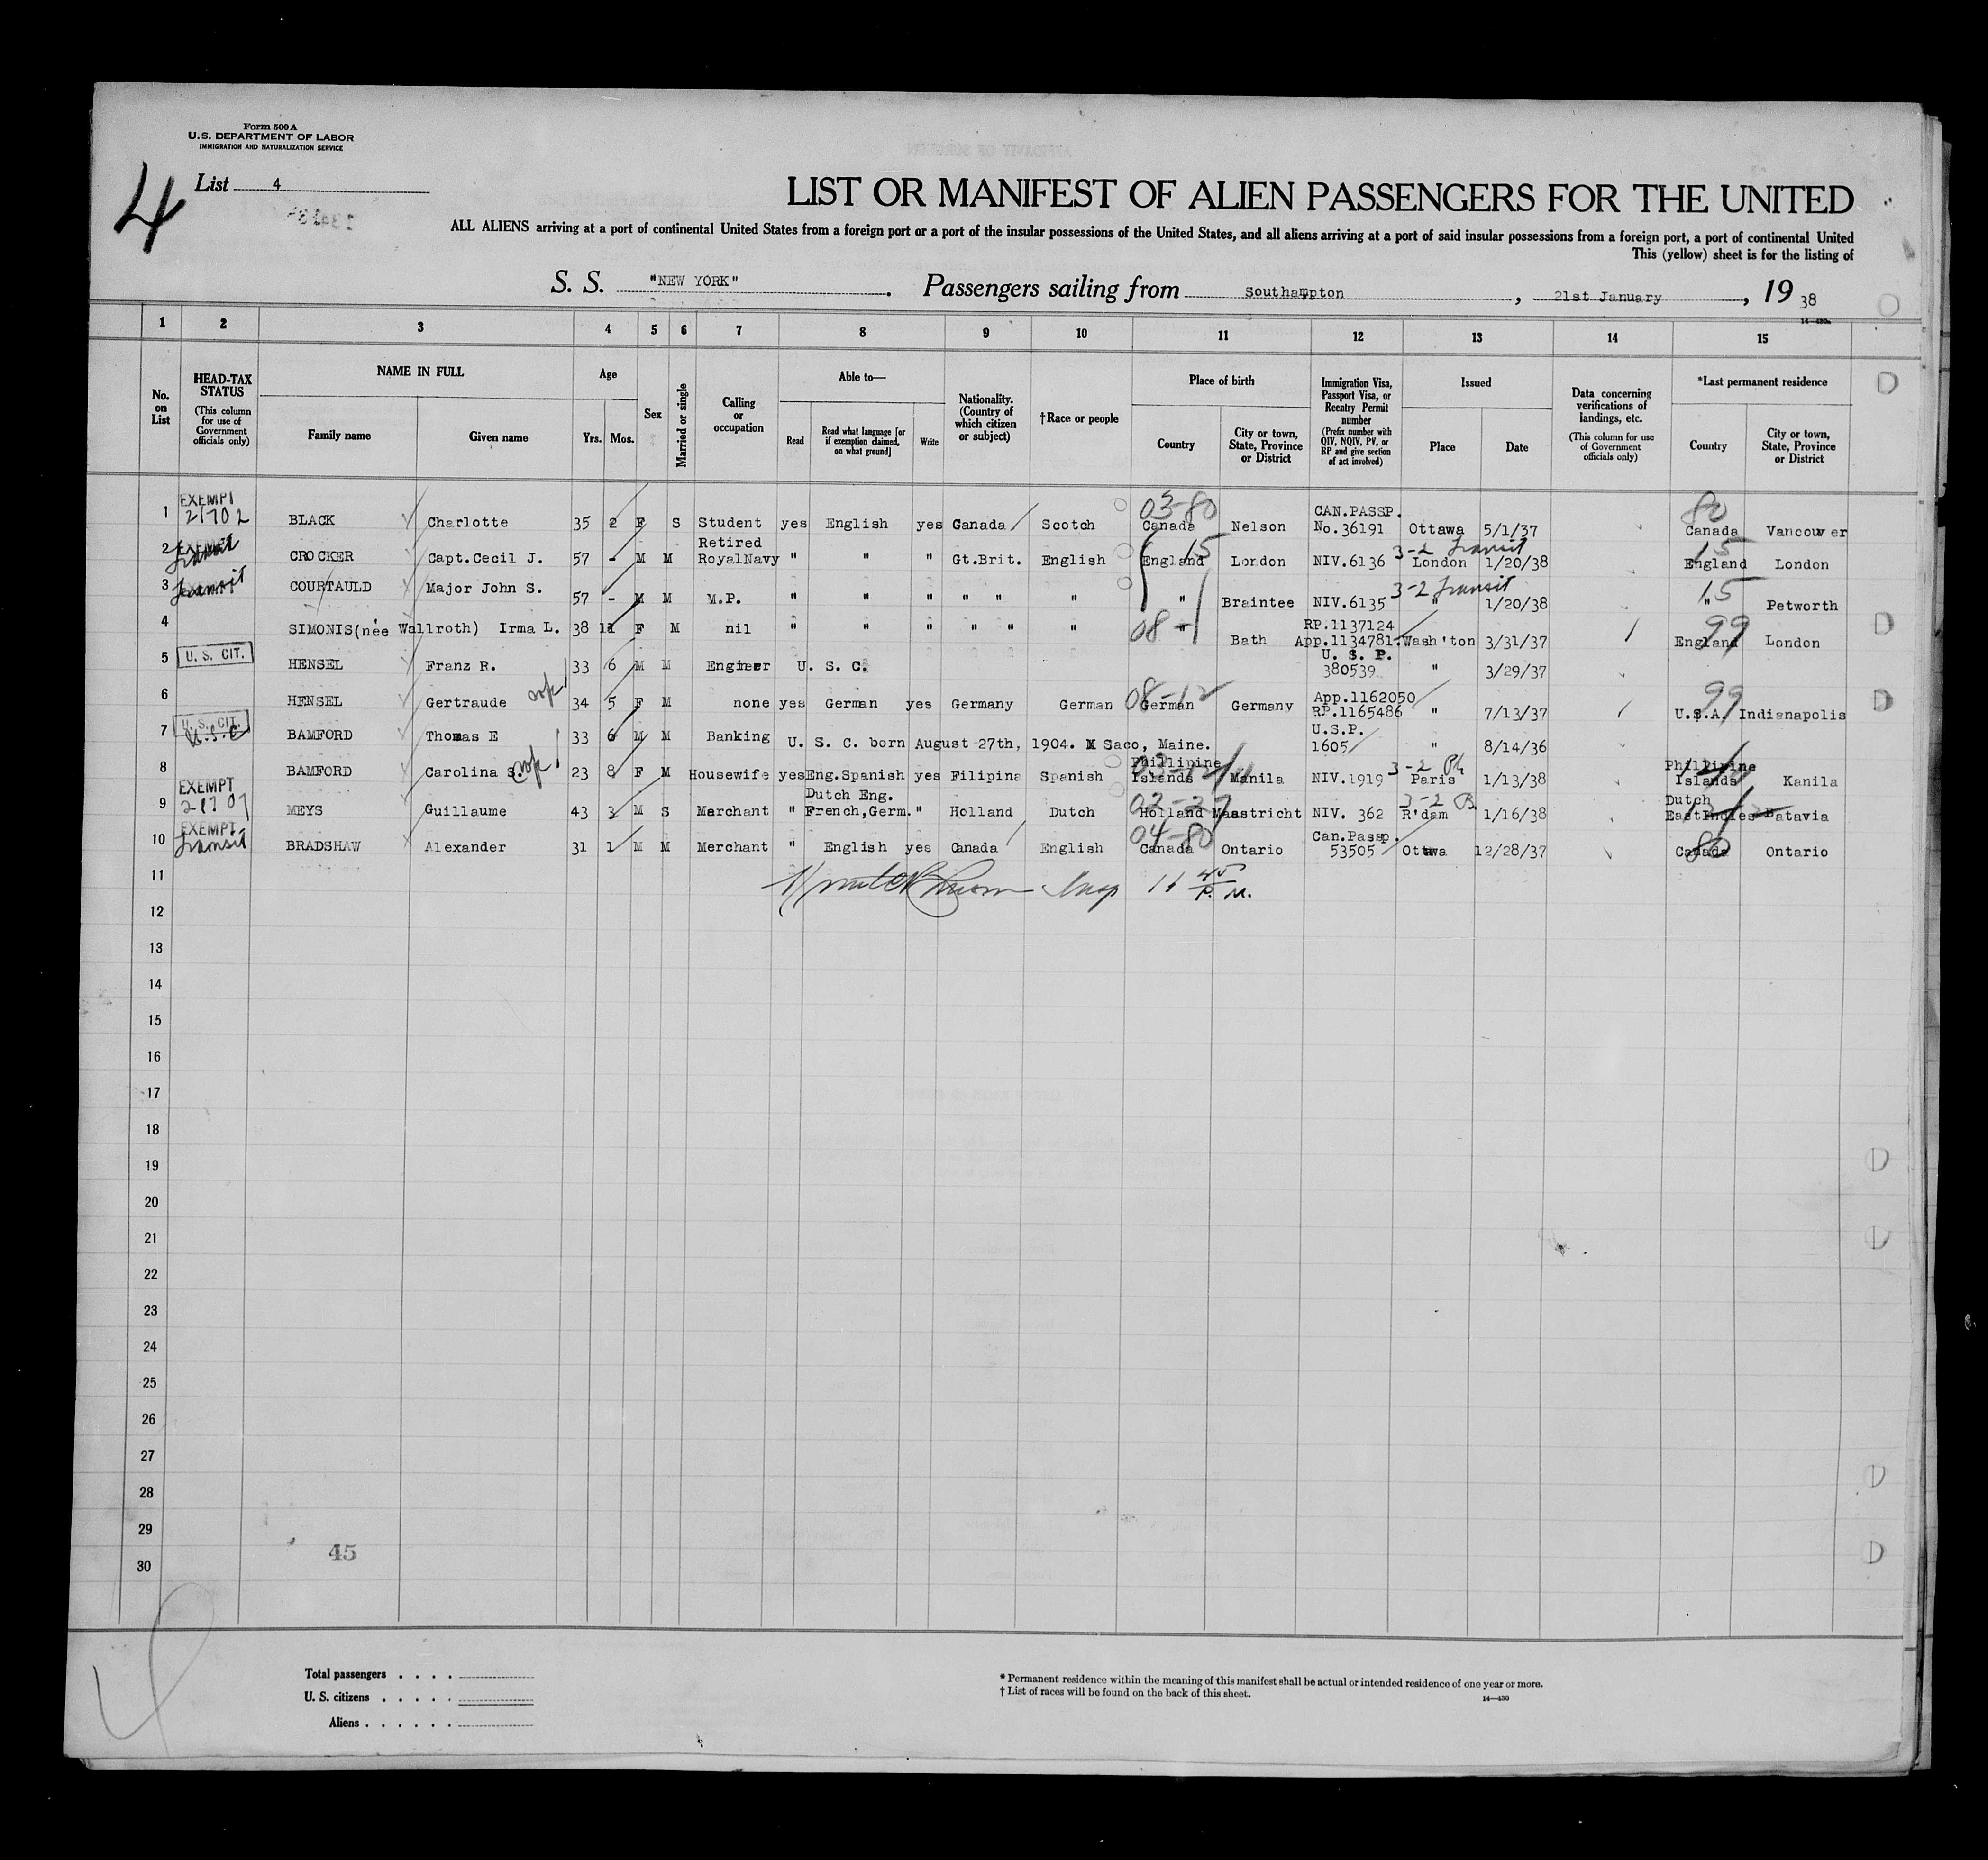 Form 500 A
U.S. DEPARTMENT OF LABOR
IMMIGRATION AND NATURALIZATION SERVICE
4
List 4
LIST OR MANIFEST OF ALIEN PASSENGERS FOR THE UNITED
ALL ALIENS arriving at a port of continental United States from a foreign port or a port of the insular possessions of the United States, and all aliens arriving at a port of said insular possessions from a foreign port, a port of continental United
This (yellow) sheet is for the listing of
S. S. "NEW YORK". Passengers sailing from Southampton, 21st January, 19 38
14—430a
1 2 3 4 5 6 7 8 9 10 11 12 13 14 15
No. on List
HEAD-TAX STATUS (This column for use of Government officials only)
NAME IN FULL
Family name Given name
Age
Yrs. Mos.
Sex
Married or single
Calling or occupation
Able to—
Read Read what language [or if exemption claimed, on what ground] Write
Nationality. (Country of which citizen or subject)
†Race or people
Place of birth
Country City or town, State, Province or District
Immigration Visa, Passport Visa, or Reentry Permit number (Prefix number with QIV, NQIV, PV, or RP and give section of act involved)
Issued
Place Date
Data concerning verifications of landings, etc. (This column for use of Government officials only)
*Last permanent residence
Country City or town, State, Province or District
EXEMPT 03-80 CAN.PASSP. 80
1 21702 BLACK Charlotte 35 2 F S Student yes English yes Canada Scotch Canada Nelson No.36191 Ottawa 5/1/37 Canada Vancouver
Retired 15 3-2 Transit 15
2 Transit CROCKER Capt.Cecil J. 57 - M M RoyalNavy " " " Gt.Brit. English England London NIV.6136 London 1/20/38 England London
3-2 Transit 15
3 Transit COURTAULD Major John S. 57 - M M M.P. " " " " " " " Braintee NIV.6135 " 1/20/38 " Petworth
RP.1137124 99
4 SIMONIS(née Wallroth) Irma L. 38 11 F M nil " " " " " " 08-1 " Bath App.1134781. Wash'ton 3/31/37 England London
U. S. P.
5 U. S. CIT. HENSEL Franz R. 33 6 M M Engineer U. S. C. 380539 " 3/29/37
App.1162050 99
6 HENSEL Gertraude 34 5 F M none yes German yes Germany German 08-12 German Germany RP.1165486 " 7/13/37 U.S.A. Indianapolis
U. S. CIT. U.S.P.
7 U.S.C BAMFORD Thomas E 33 6 M M Banking U. S. C. born August 27th, 1904. Saco, Maine. 1605 " 8/14/36
Phillipine 3-2 Phillipine
8 BAMFORD Carolina S. 23 8 F M Housewife yes Eng.Spanish yes Filipina Spanish Islands Manila NIV.1919 Paris 1/13/38 Islands Kanila
EXEMPT Dutch Eng. 02-27 3-2 Dutch
9 21707 MEYS Guillaume 43 3 M S Merchant " French,Germ." Holland Dutch Holland Maastricht NIV. 362 R'dam 1/16/38 East Indies Batavia
EXEMPT 04-80 Can.Passp. 80
10 Transit BRADSHAW Alexander 31 1 M M Merchant " English yes Canada English Canada Ontario 53505 Ottawa 12/28/37 Canada Ontario
11 Insp 45 P. M.
12
13
14
15
16
17
18
19
20
21
22
23
24
25
26
27
28
29
45
30
Total passengers . . . .
U. S. citizens . . . . .
Aliens . . . . . .
* Permanent residence within the meaning of this manifest shall be actual or intended residence of one year or more.
† List of races will be found on the back of this sheet.
14—430